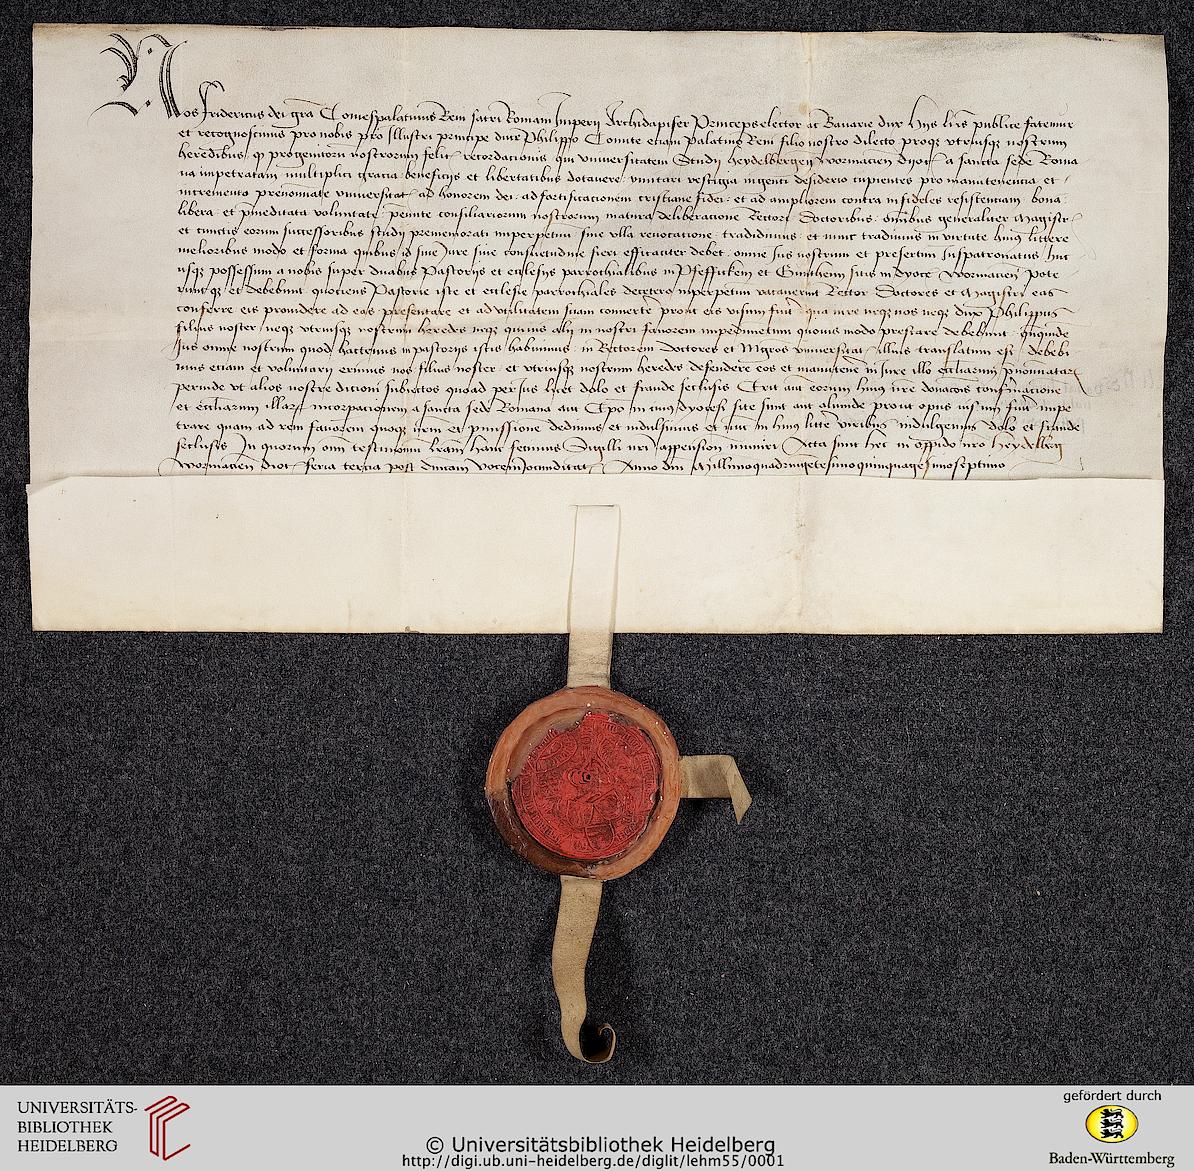 Nos Fridericus dei gra Comespalatinus Reni sacri Romani Imperij Archidapifer Princepselector ac Bavarie dux hijs lris publice fatemur
et recognoscimus pro nobis pro Illustri principe dno Philippo Comite etiam Palatino Reni filio nostro dilecto proqz utriusqz nostrum
heredibus qz progenitorum nostrorum felic recordacionis qui universitatem Studij heydelbergen wormacien dyoc a sancta sede Roma
na impetratam multiplici gracia beneficijs et libertatibus dotavere imitari vestigia ingenti desiderio cupientes pro manutenencia et
incremento prenominate universitat ad honorem dei ad fortificacionem cristiane fidei et ad ampliorem contra infideles resistenciam bona
libera et premeditata voluntate consiliariorum nostrorum matura deliberacione Rectori Doctoribus omnibus generaliter Magistr
et cunctis eorum successoribus studij prememorati imperpetuum sine ulla revocacione tradidimus et nunc tradimus in virtute huius littere
melioribus modo et forma quibus id sive Jure sive consuetudine fieri efficaciter debet omne Jus nostrum et presertim Juspatronatus huc
usqz possessum a nobis super duabus Pastorijs et ecclesijs parrochialibus in Pfeffickem et Guntheim sitis in dyoc Wormacien Pote
runt qz et debebunt quociens Pastorie iste et ecclesie parrochiales decetero imperpetuum vacaverint Rector Doctores et Magistri eas
conferre eis providere ad eas presentare et ad utilitatem suam convertere prout eis visum fuerit qua in re neqz nos neqz dnus Philippus
filius noster neqz utriusqz nostrum heredes neqz quivis alij in nostri favorem impedimentum quovis modo prestare debebunt quinde
Jus omne nostrum quod hactenus in pastorijs istis habuimus in Rectorem doctores et Mgros universitat illius translatum est debebi
mus etiam et voluntarij erimus nos filius noster et utriusqz nostrum heredes defendere eos et manutenere in iure illo eccliarum prenominatarum
perinde ut alios nostre dicioni subiectos quoad per ius licet dolo et fraude seclusis Erit aut eorum huius nre donacionis confirmacionem
et eccliarum illarum incorporacionem a sancta sede Romana aut Epo in cuius dyocesi site sunt aut aliunde prout opus visum fuerit impe
trare quam ad rem favorem quoqz nrm et permissione dedimus et indulsimus et nunc in huius littere viribus indulgemus dolo et fraude
seclusis In quorum omnium testimonium lram hanc fecimus Sigilli nri appensione muniri Acta sunt hec in opido nro heydelberg
wormacien dioc feria tercia post dnicam Vocem Jocunditat Anno dni Millimoquadringentesimoquinquagesimoseptimo
UNIVERSITÄTS-
BIBLIOTHEK
HEIDELBERG
© Universitätsbibliothek Heidelberg
http://digi.ub.uni-heidelberg.de/diglit/lehm55/0001
gefördert durch
Baden-Württemberg